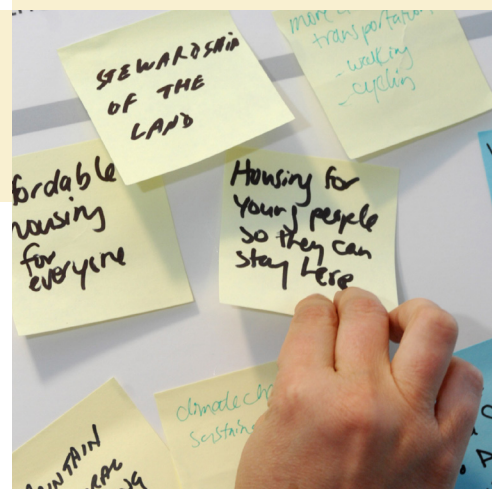 STEWARDSHIP
OF THE
LAND
more
transportation
- walking
- cycling
fordable
housing
for
everyone
Housing for
young people
so they can
stay here
climate ch
Sustain
NTAIN
RAL
NG